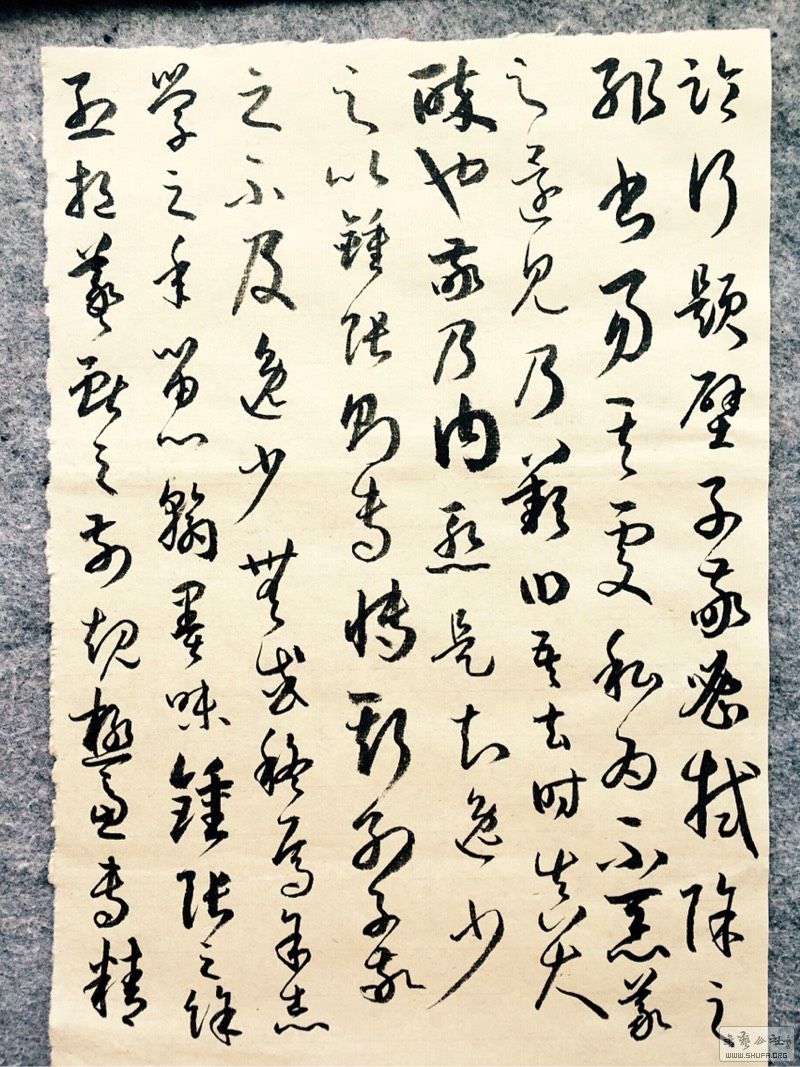 臨行題壁子敬密拭除之
輒書易其處私為不惡羲
之還見乃歎曰吾去時真大
醉也敬乃内慙是知逸少
之比鍾張則專博斯別子敬
之不及逸少無或疑焉余志
學之年留心翰墨味鍾張之餘
烈挹羲獻之前規極慮專精
WWW.SHUFA.ORG